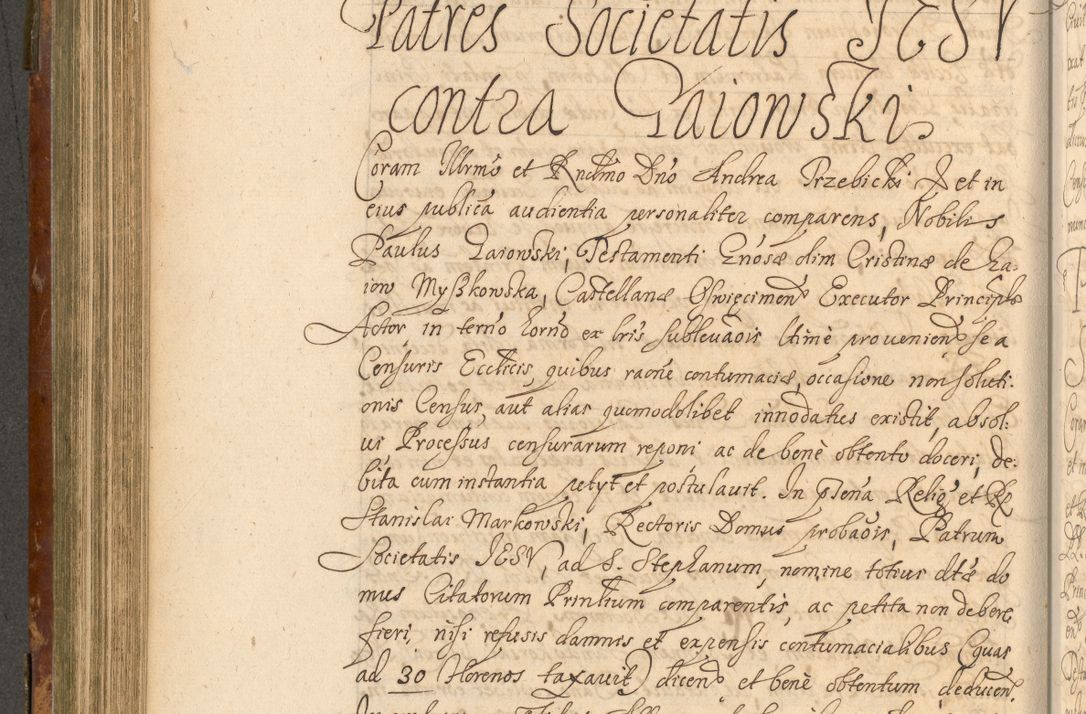 Patres Societatis JESV
contra Gaiowski
Coram Illrmo et Rndmo Dno Andrea Trzebicki J et in
eius publica audientia personaliter comparens, Nobilis
Paulus Gaiowski, Testamenti Gnosæ olim Cristinæ de Ga:
iow Myßkowska, Castellanæ Oswięcimen Executor Principlis
Actor in termo horno ex lris sublevaois ltimè provenien se a
Censuris Eccticis, quibus raone contumaciæ, occasione non soluti:
onis Census, aut alias quomodolibet innodatus existit, absol:
vi Processus censurarum reponi ac de benè obtento doceri, de:
bita cum instantia petyt et postulavit. In pñena Relig et R
Stanislai Markowski, Rectoris Domus probaois, Patrum
Societatis JESV, ad S. Stephanum, nomine totius dtæ do
mus Citatorum Prinlium comparentis, ac petita non debere
fieri, nisi refusis damnis et expensis contumacialibus (quas
ad 30 florenos taxavit) dicen et benè obtentum deducen